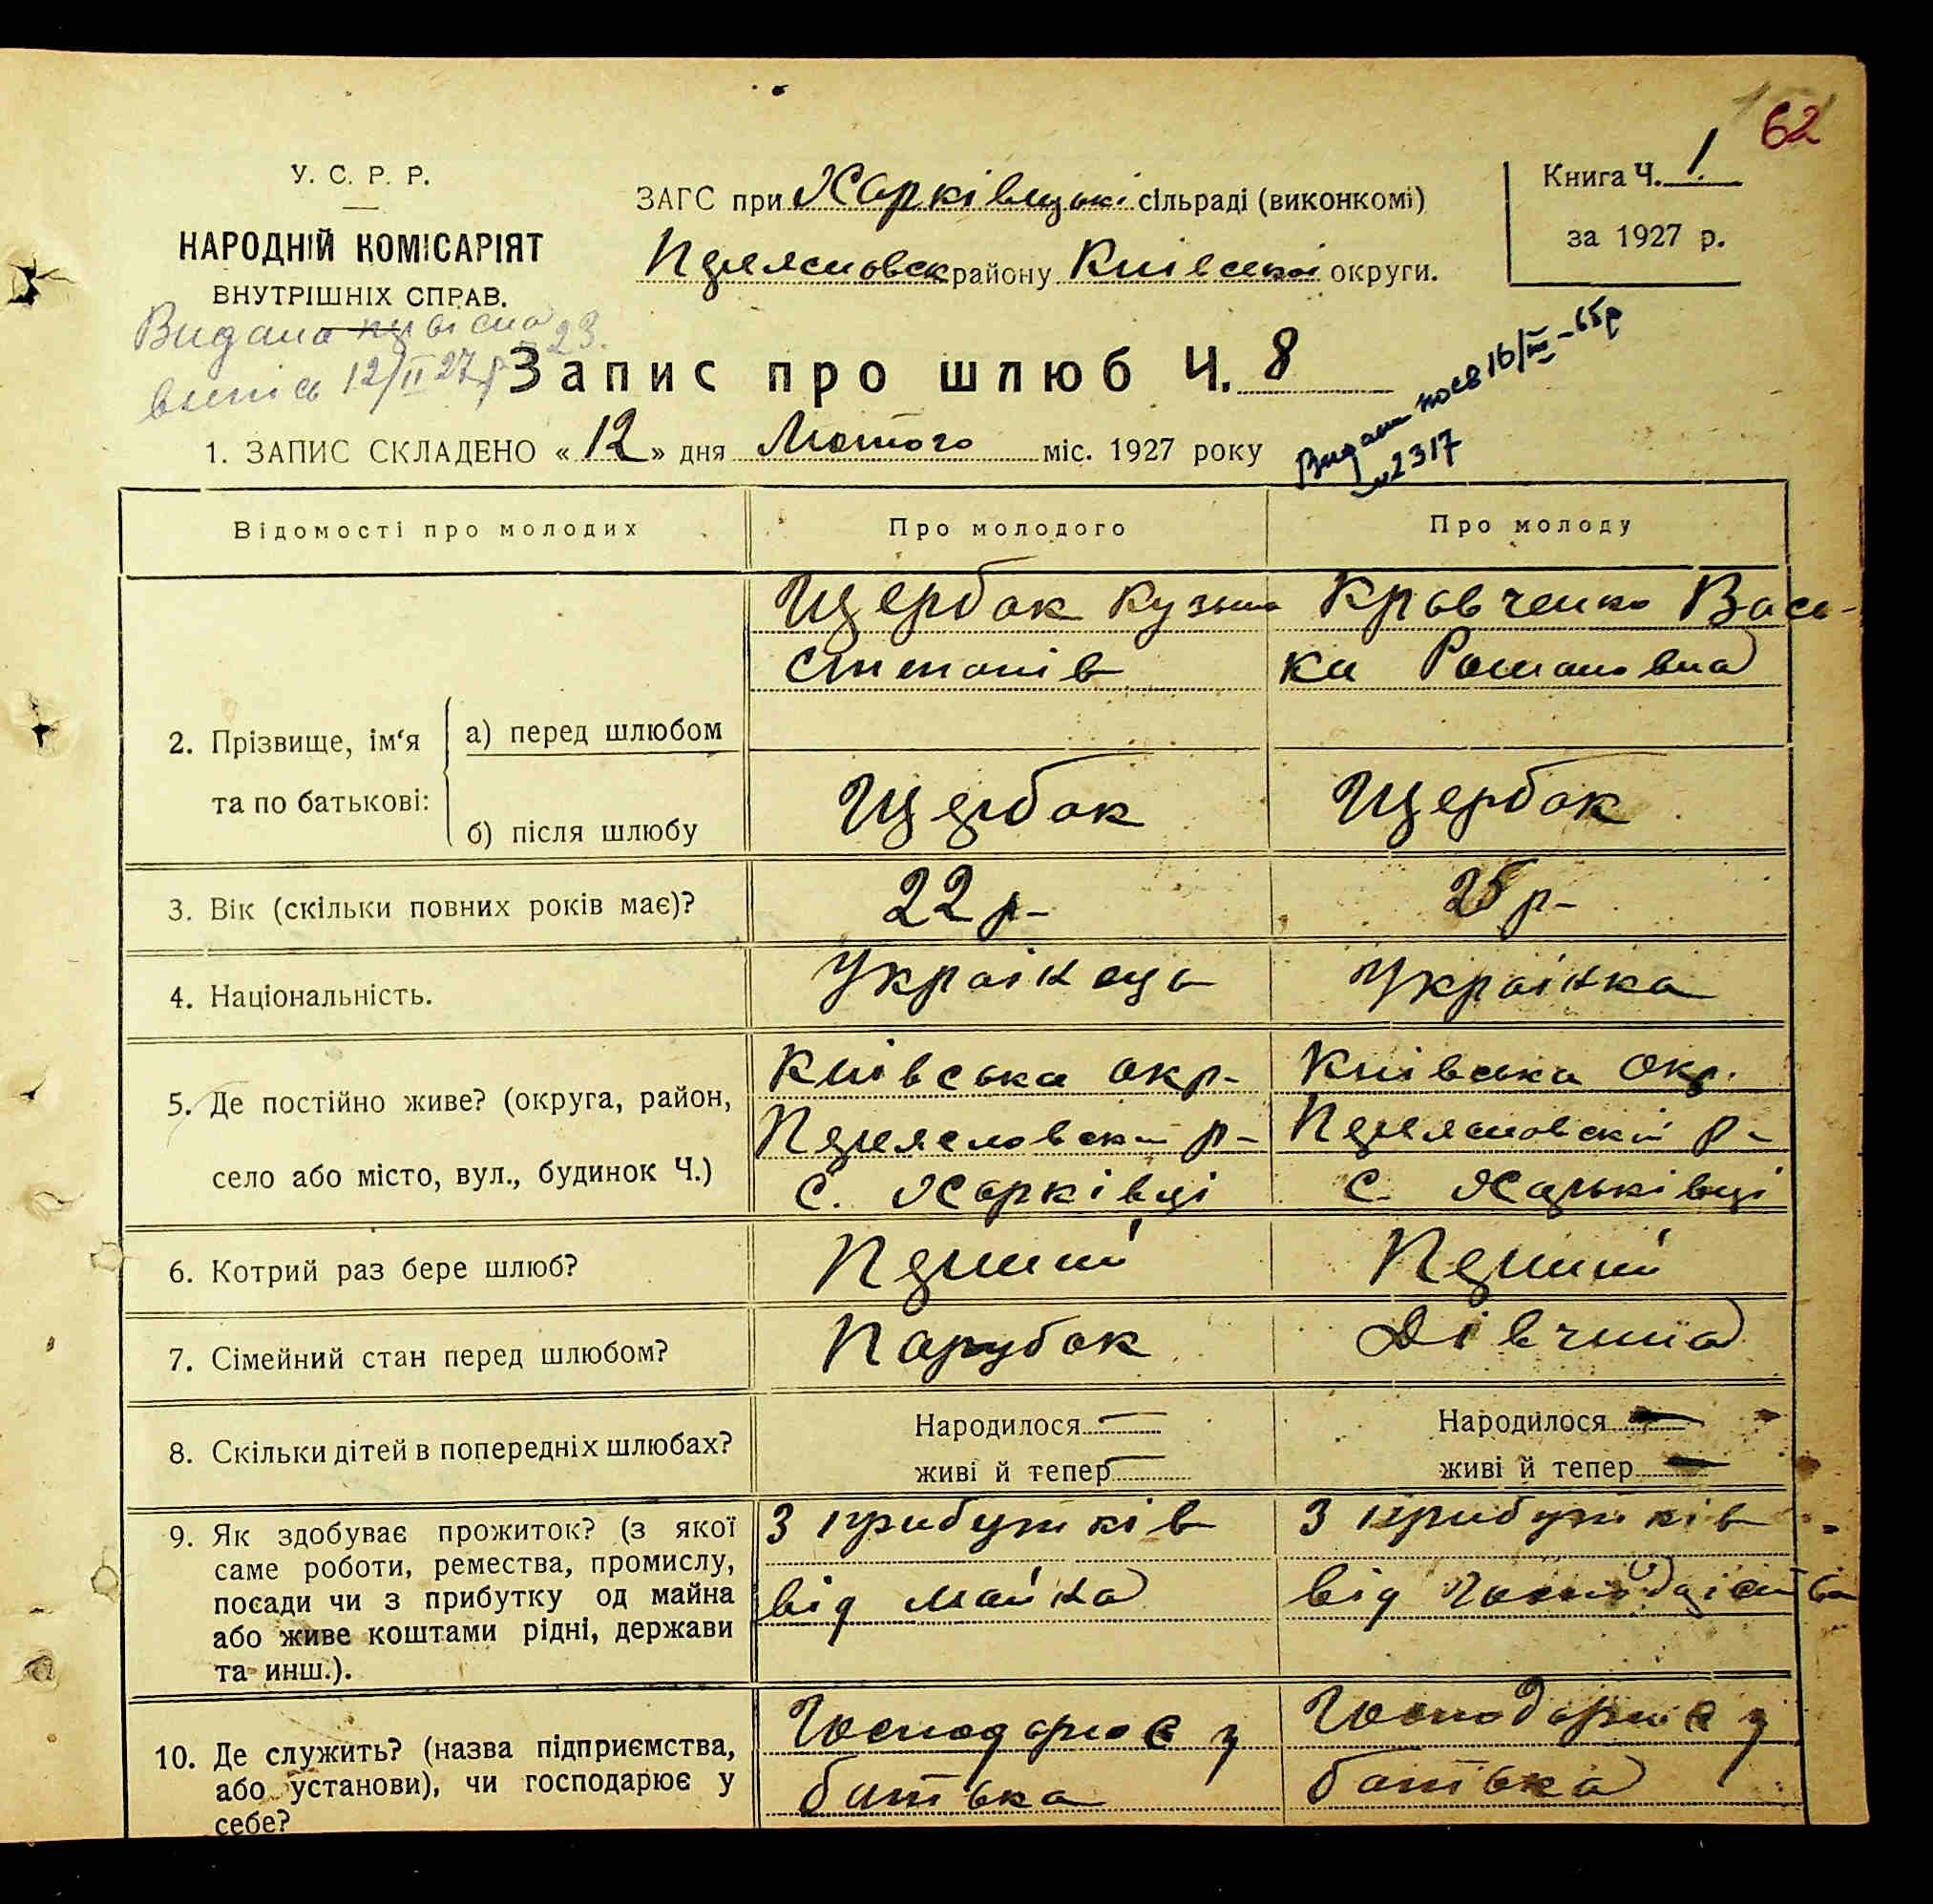 62
У. С. Р. Р.
НАРОДНІЙ КОМІСАРІЯТ
ВНУТРІШНІХ СПРАВ.
ЗАГС при Харківцькі сільраді (виконкомі)
Переясловск району Київської округи.
Книга Ч. 1
за 1927 р.
Видана
випись 12/II 27 р 23.
Запис про шлюб Ч. 8
Видано 16/III-65р
№2317
1. ЗАПИС СКЛАДЕНО « 12 » дня Лютого міс. 1927 року
Відомості про молодих Про молодого Про молоду
2. Прізвище, ім'я та по батькові:
а) перед шлюбом
Щербак Кузьма
Степанів
Кравченко Васи-
ка Романовна
б) після шлюбу Щербак Щербак
3. Вік (скільки повних років має)? 22 р- 25 р-
4. Національність. Українець Українка
5. Де постійно живе? (округа, район,
село або місто, вул., будинок Ч.)
Київська окр-
Переясловский р-
с. Харківці
Київська окр.
Переясловскій р-
с. Харьківці
6. Котрий раз бере шлюб? Перший Перший
7. Сімейний стан перед шлюбом? Парубок Дівчина
8. Скільки дітей в попередніх шлюбах?
Народилося —
живі й тепер —
Народилося —
живі й тепер —
9. Як здобуває прожиток? (з якої
саме роботи, ремества, промислу,
посади чи з прибутку од майна
або живе коштами рідні, держави
та инш.).
З прибутків
від майна
З прибутків
від
10. Де служить? (назва підприємства,
або установи), чи господарює у
себе?
Господарює у
батька
Господарює у
батька